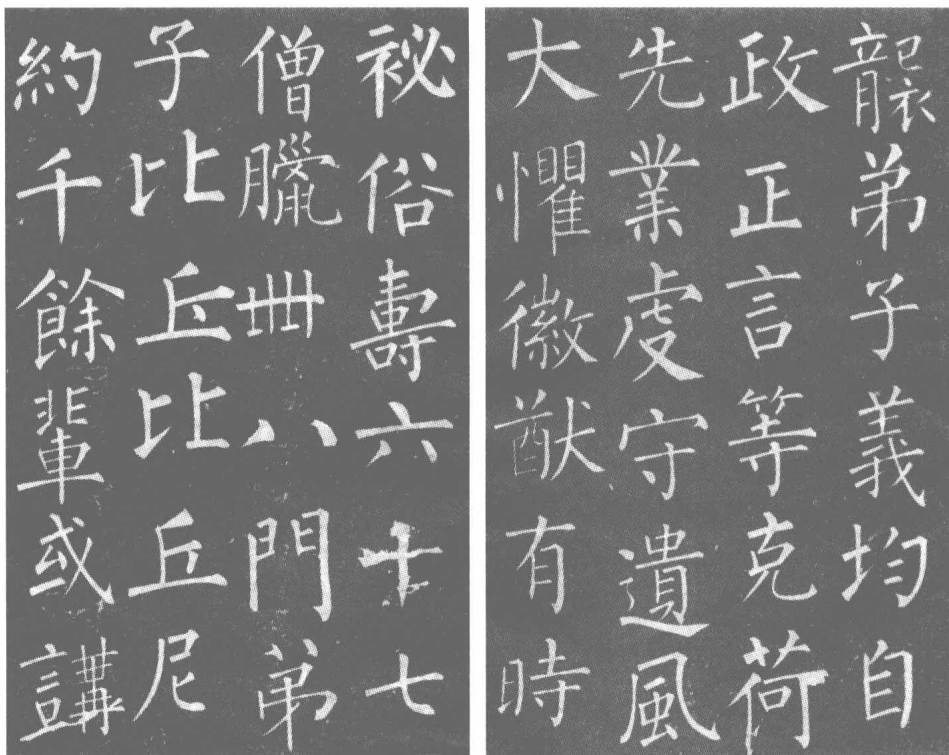 祕俗壽六十七
僧臘卌八門弟
子比丘比丘尼
約千餘輩或講
襲弟子義均自
政正言等克荷
先業虔守遺風
大懼徽猷有時